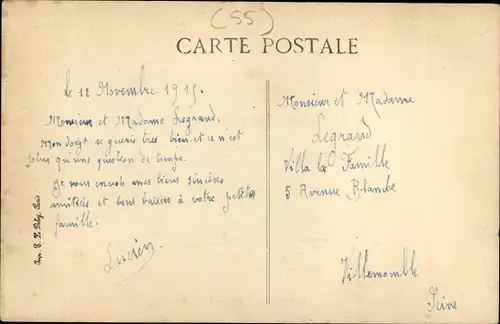 (55)
CARTE POSTALE
le 12 Novembre 1915.
Monsieur et Madame Legrand.
Mon doigt se gueris tres bien et ce n'est
plus qu'une question de temps.
Je vous envois mes biens sincères
amitiés et bons baisers à votre petite
famille.
Lucien
Monsieur et Madame
Legrand
Villa la Famille
5 Avenue Blanche
Villemomble
Seine
Imp. E. Le Deley, Paris.